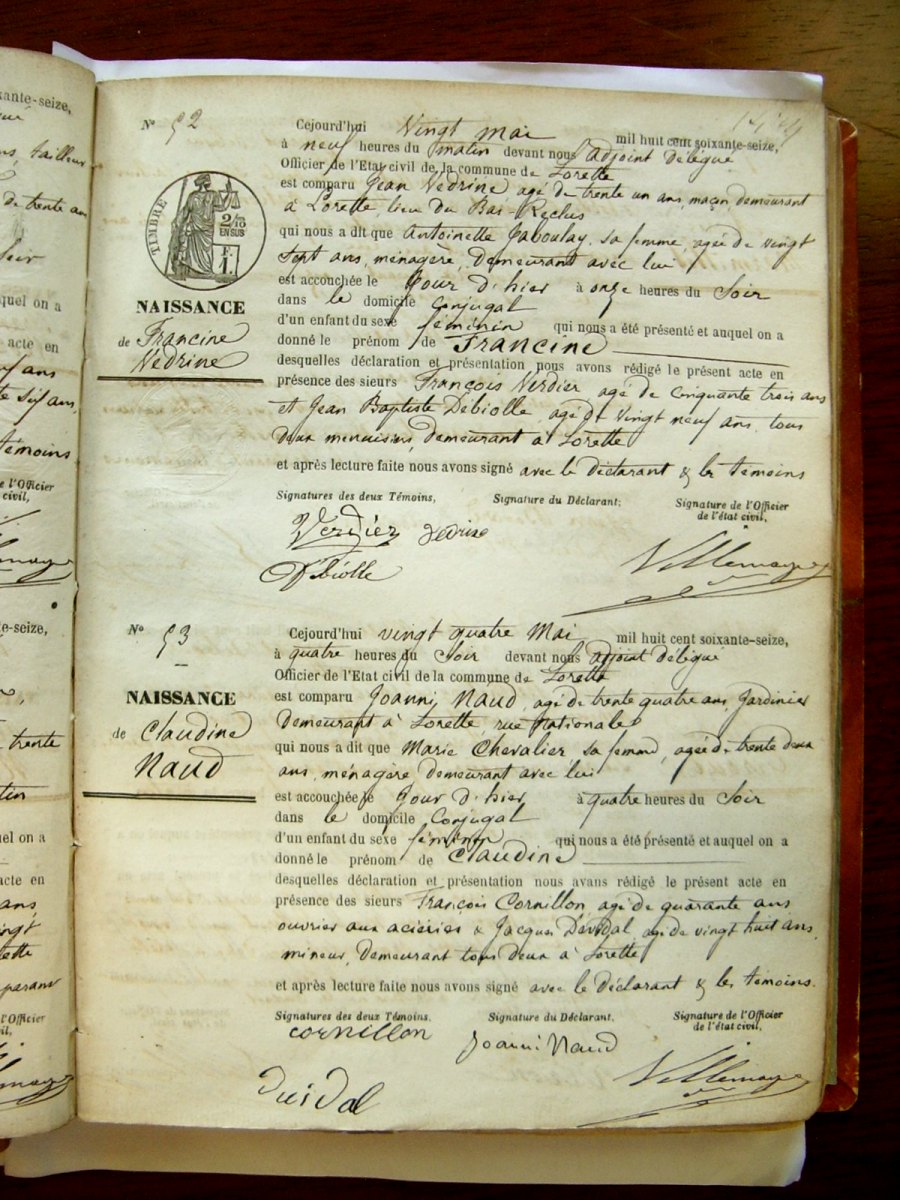 xante-seize,
tailleur
de trente ans
quel on a
acte en
ans
ans,
témoins
e l'Officier
civil,
e-seize,
trente
uel on a
acte en
ans
l'Officier
il,
N° 52
Cejourd'hui Vingt mai mil huit cent soixante-seize,
à neuf heures du matin devant nous adjoint délégué
Officier de l'Etat civil de la commune de Lorette
est comparu Jean Vedrine agé de trente un ans, maçon, demeurant
à Lorette, lieu du Bas-Reclus
qui nous a dit que Antoinette Jaboulay, sa femme, agée de vingt
sept ans, ménagère, demeurant avec lui
est accouchée le jour d'hier à onze heures du Soir
dans le domicile Conjugal
d'un enfant du sexe féminin qui nous a été présenté et auquel on a
donné le prénom de Francine
desquelles déclaration et présentation nous avons rédigé le présent acte en
présence des sieurs François Verdier agé de Cinquante trois ans
et Jean Baptiste Debiolle, agé de vingt neuf ans, tous
deux menuisiers, demeurant à Lorette
et après lecture faite nous avons signé avec le déclarant & les témoins
TIMBRE
2/10
EN SUS
NAISSANCE
de Francine
Vedrine
Signatures des deux Témoins, Signature du Déclarant; Signature de l'Officier
de l'état civil,
Verdier Vedrine
Debiolle Villemagne
N° 53
Cejourd'hui vingt quatre Mai mil huit cent soixante-seize,
à quatre heures du Soir devant nous adjoint délégué
Officier de l'Etat civil de la commune de Lorette
est comparu Joanni Naud, agé de trente quatre ans, Jardinier
Demeurant à Lorette, rue Nationale
qui nous a dit que Marie Chevalier, sa femme, agée de trente deux
ans, ménagère demeurant avec lui
est accouchée le jour d'hier à quatre heures du Soir
dans le domicile Conjugal
d'un enfant du sexe féminin qui nous a été présenté et auquel on a
donné le prénom de Claudine
desquelles déclaration et présentation nous avans rédigé le présent acte en
présence des sieurs François Cornillon agé de quarante ans
ouvrier aux aciéries & Jacques Dévidal agé de vingt huit ans,
mineur, demeurant tous deux à Lorette
et après lecture faite nous avons signé avec le déclarant & les témoins.
NAISSANCE
de Claudine
Naud
Signatures des deux Témoins. Signature du Déclarant, Signature de l'Officier
de l'état civil,
Cornillon Joanni Naud
Villemagne